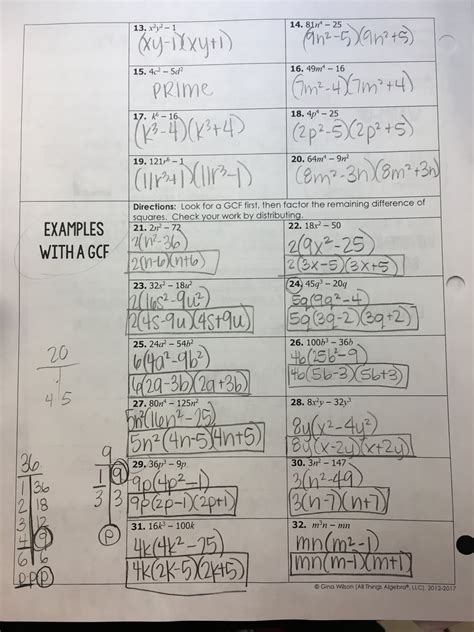 13. x²y² – 1
(xy-1)(xy+1)
14. 81n⁴ – 25
(9n²-5)(9n²+5)
15. 4c² – 5d²
PRIME
16. 49m⁴ – 16
(7m²-4)(7m²+4)
17. k⁶ – 16
(k³-4)(k³+4)
18. 4p⁴ – 25
(2p²-5)(2p²+5)
19. 121r⁶ – 1
(11r³+1)(11r³-1)
20. 64m⁴ – 9n²
(8m²-3n)(8m²+3n)
EXAMPLES
WITH A GCF
Directions: Look for a GCF first, then factor the remaining difference of
squares. Check your work by distributing.
21. 2n² – 72
2(n²-36)
2(n-6)(n+6)
22. 18x² – 50
2(9x²-25)
2(3x-5)(3x+5)
23. 32s² – 18u²
2(16s²-9u²)
2(4s-9u)(4s+9u)
24. 45q³ – 20q
5q(9q²-4)
5q(3q-2)(3q+2)
25. 24a² – 54b²
6(4a²-9b²)
6(2a-3b)(2a+3b)
26. 100b³ – 36b
4b(25b²-9)
4b(5b-3)(5b+3)
27. 80n⁴ – 125n²
5n²(16n²-25)
5n²(4n-5)(4n+5)
28. 8x²y – 32y³
8y(x²-4y²)
8y(x-2y)(x+2y)
29. 36p³ – 9p
9p(4p²-1)
9p(2p-1)(2p+1)
30. 3n² – 147
3(n²-49)
3(n-7)(n+7)
31. 16k³ – 100k
4k(4k²-25)
4k(2k-5)(2k+5)
32. m³n – mn
mn(m²-1)
mn(m-1)(m+1)
20
1
4 5
36
1 36
2 18
3 12
4 9
6 6
PPP
9
1 9
3 3
P
© Gina Wilson (All Things Algebra®, LLC), 2012-2017